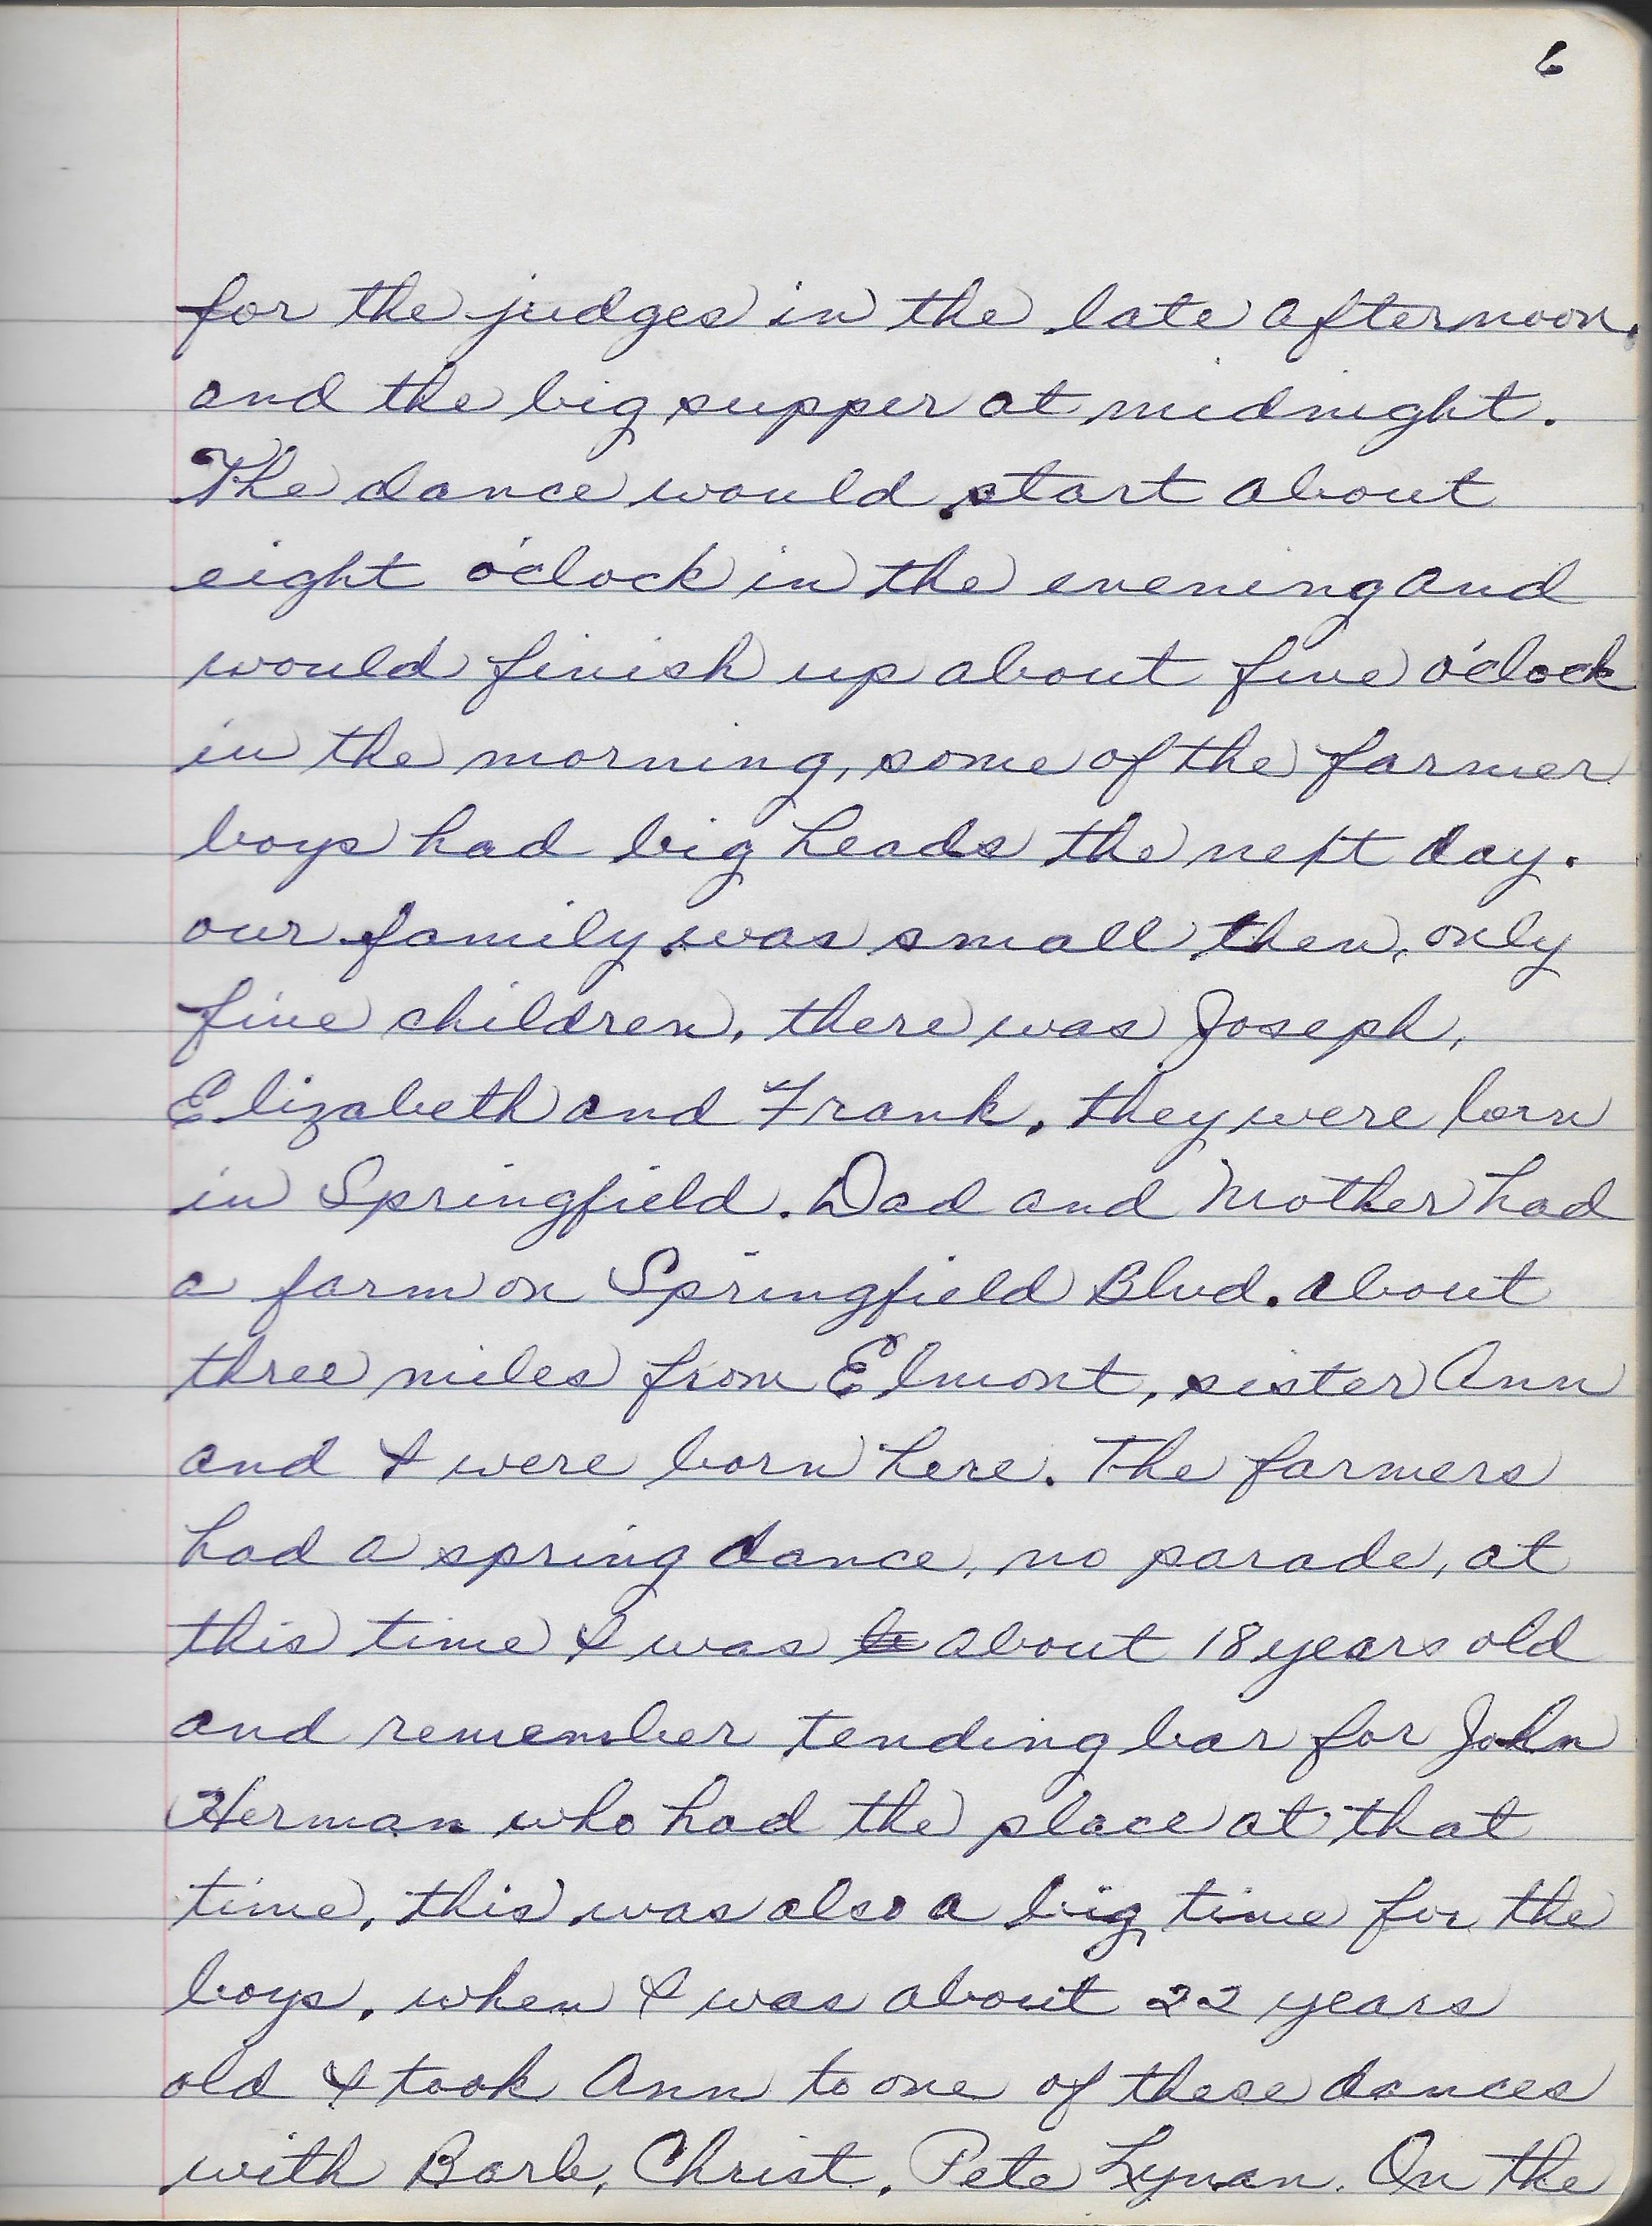 6
for the judges in the late afternoon.
and the big supper at midnight.
The dance would start about
eight o'clock in the evening and
would finish up about five o'clock
in the morning, some of the farmer
boys had big heads the next day.
our family was small then, only
five children, there was Joseph,
Elizabeth and Frank, they were born
in Springfield. Dad and Mother had
a farm on Springfield Blvd. about
three miles from Elmont, sister Ann
and I were born here. The farmers
had a spring dance, no parade, at
this time I was about 18 years old
and remember tending bar for John
Herman who had the place at that
time, this was also a big time for the
boys, when I was about 22 years
old I took Ann to one of these dances
with Barb, Christ, Pete Lynan. On the